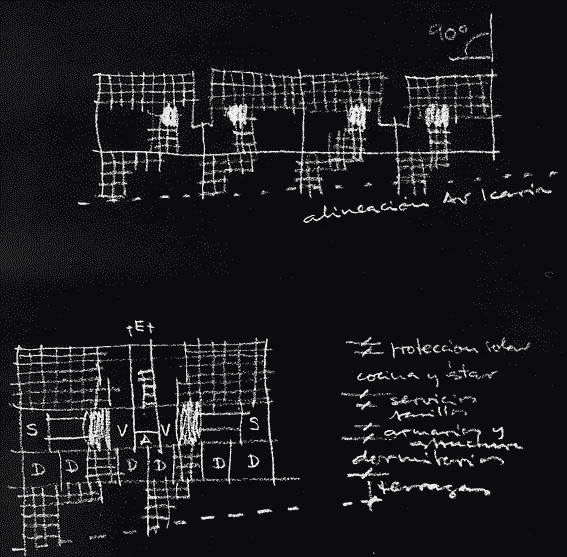 90°
alineacion Av Icaria
E
S V A V S
D D D D D D
proteccion solar
cocina y star
servicios
pasillos
armarios y
estructura
dormitorios
terrazas